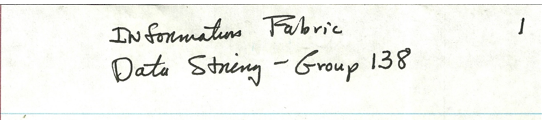 Information Fabric 1
Data String - Group 138